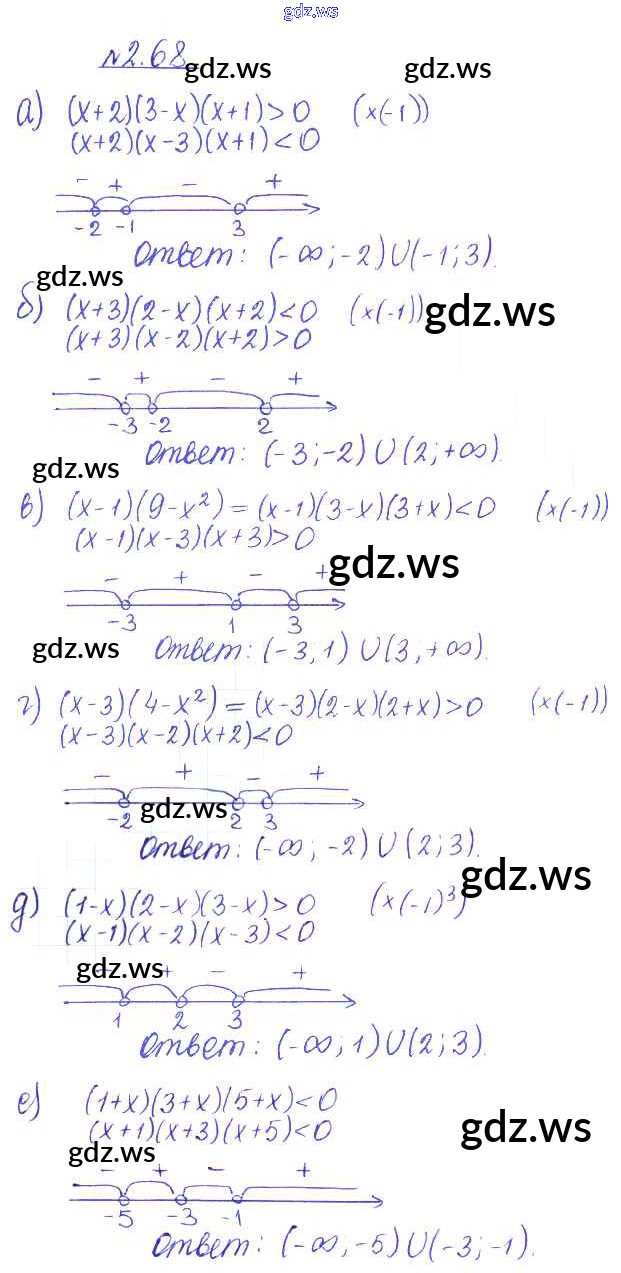 gdz.ws
№2.68
gdz.ws gdz.ws
а) (x+2)(3-x)(x+1)>0 (x(-1))
(x+2)(x-3)(x+1)<0
- + - +
-2 -1 3
Ответ: (-∞;-2)U(-1;3).
gdz.ws
б) (x+3)(2-x)(x+2)<0 (x(-1)) gdz.ws
(x+3)(x-2)(x+2)>0
- + - +
-3 -2 2
Ответ: (-3;-2)U(2;+∞).
gdz.ws
в) (x-1)(9-x²)=(x-1)(3-x)(3+x)<0 (x(-1))
(x-1)(x-3)(x+3)>0
gdz.ws
- + - +
-3 1 3
gdz.ws Ответ: (-3,1)U(3,+∞).
г) (x-3)(4-x²)=(x-3)(2-x)(2+x)>0 (x(-1))
(x-3)(x-2)(x+2)<0
- + - +
gdz.ws
-2 2 3
Ответ: (-∞;-2)U(2;3).
gdz.ws
д) (1-x)(2-x)(3-x)>0 (x(-1)³)
(x-1)(x-2)(x-3)<0
gdz.ws
+ - +
1 2 3
Ответ: (-∞;1)U(2;3).
е) (1+x)(3+x)(5+x)<0
gdz.ws
(x+1)(x+3)(x+5)<0
gdz.ws
- + - +
-5 -3 -1
Ответ: (-∞,-5)U(-3;-1).